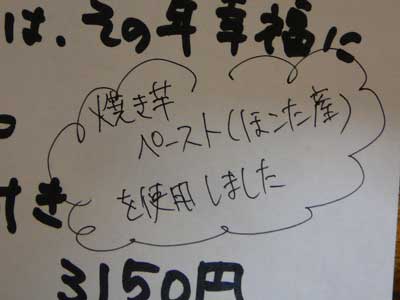 は、その年幸福に
焼き芋
ペースト(ほこた産)
を使用しました
き
3150円